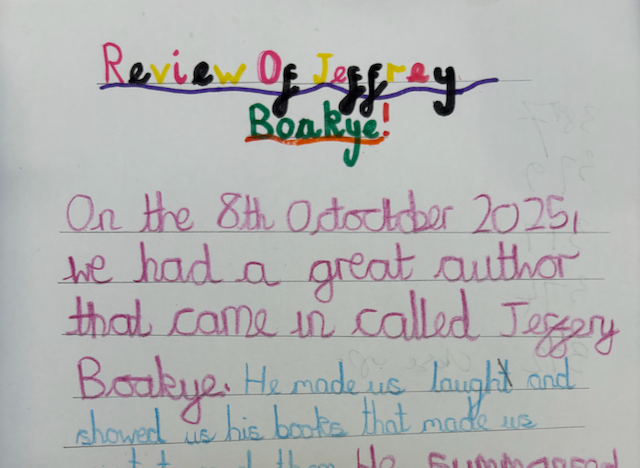 Review Of Jeffrey
Boakye!
On the 8th Octoctober 2025,
we had a great author
that came in called Jeffery
Boakye. He made us laugh and
showed us his books that made us
He summarised